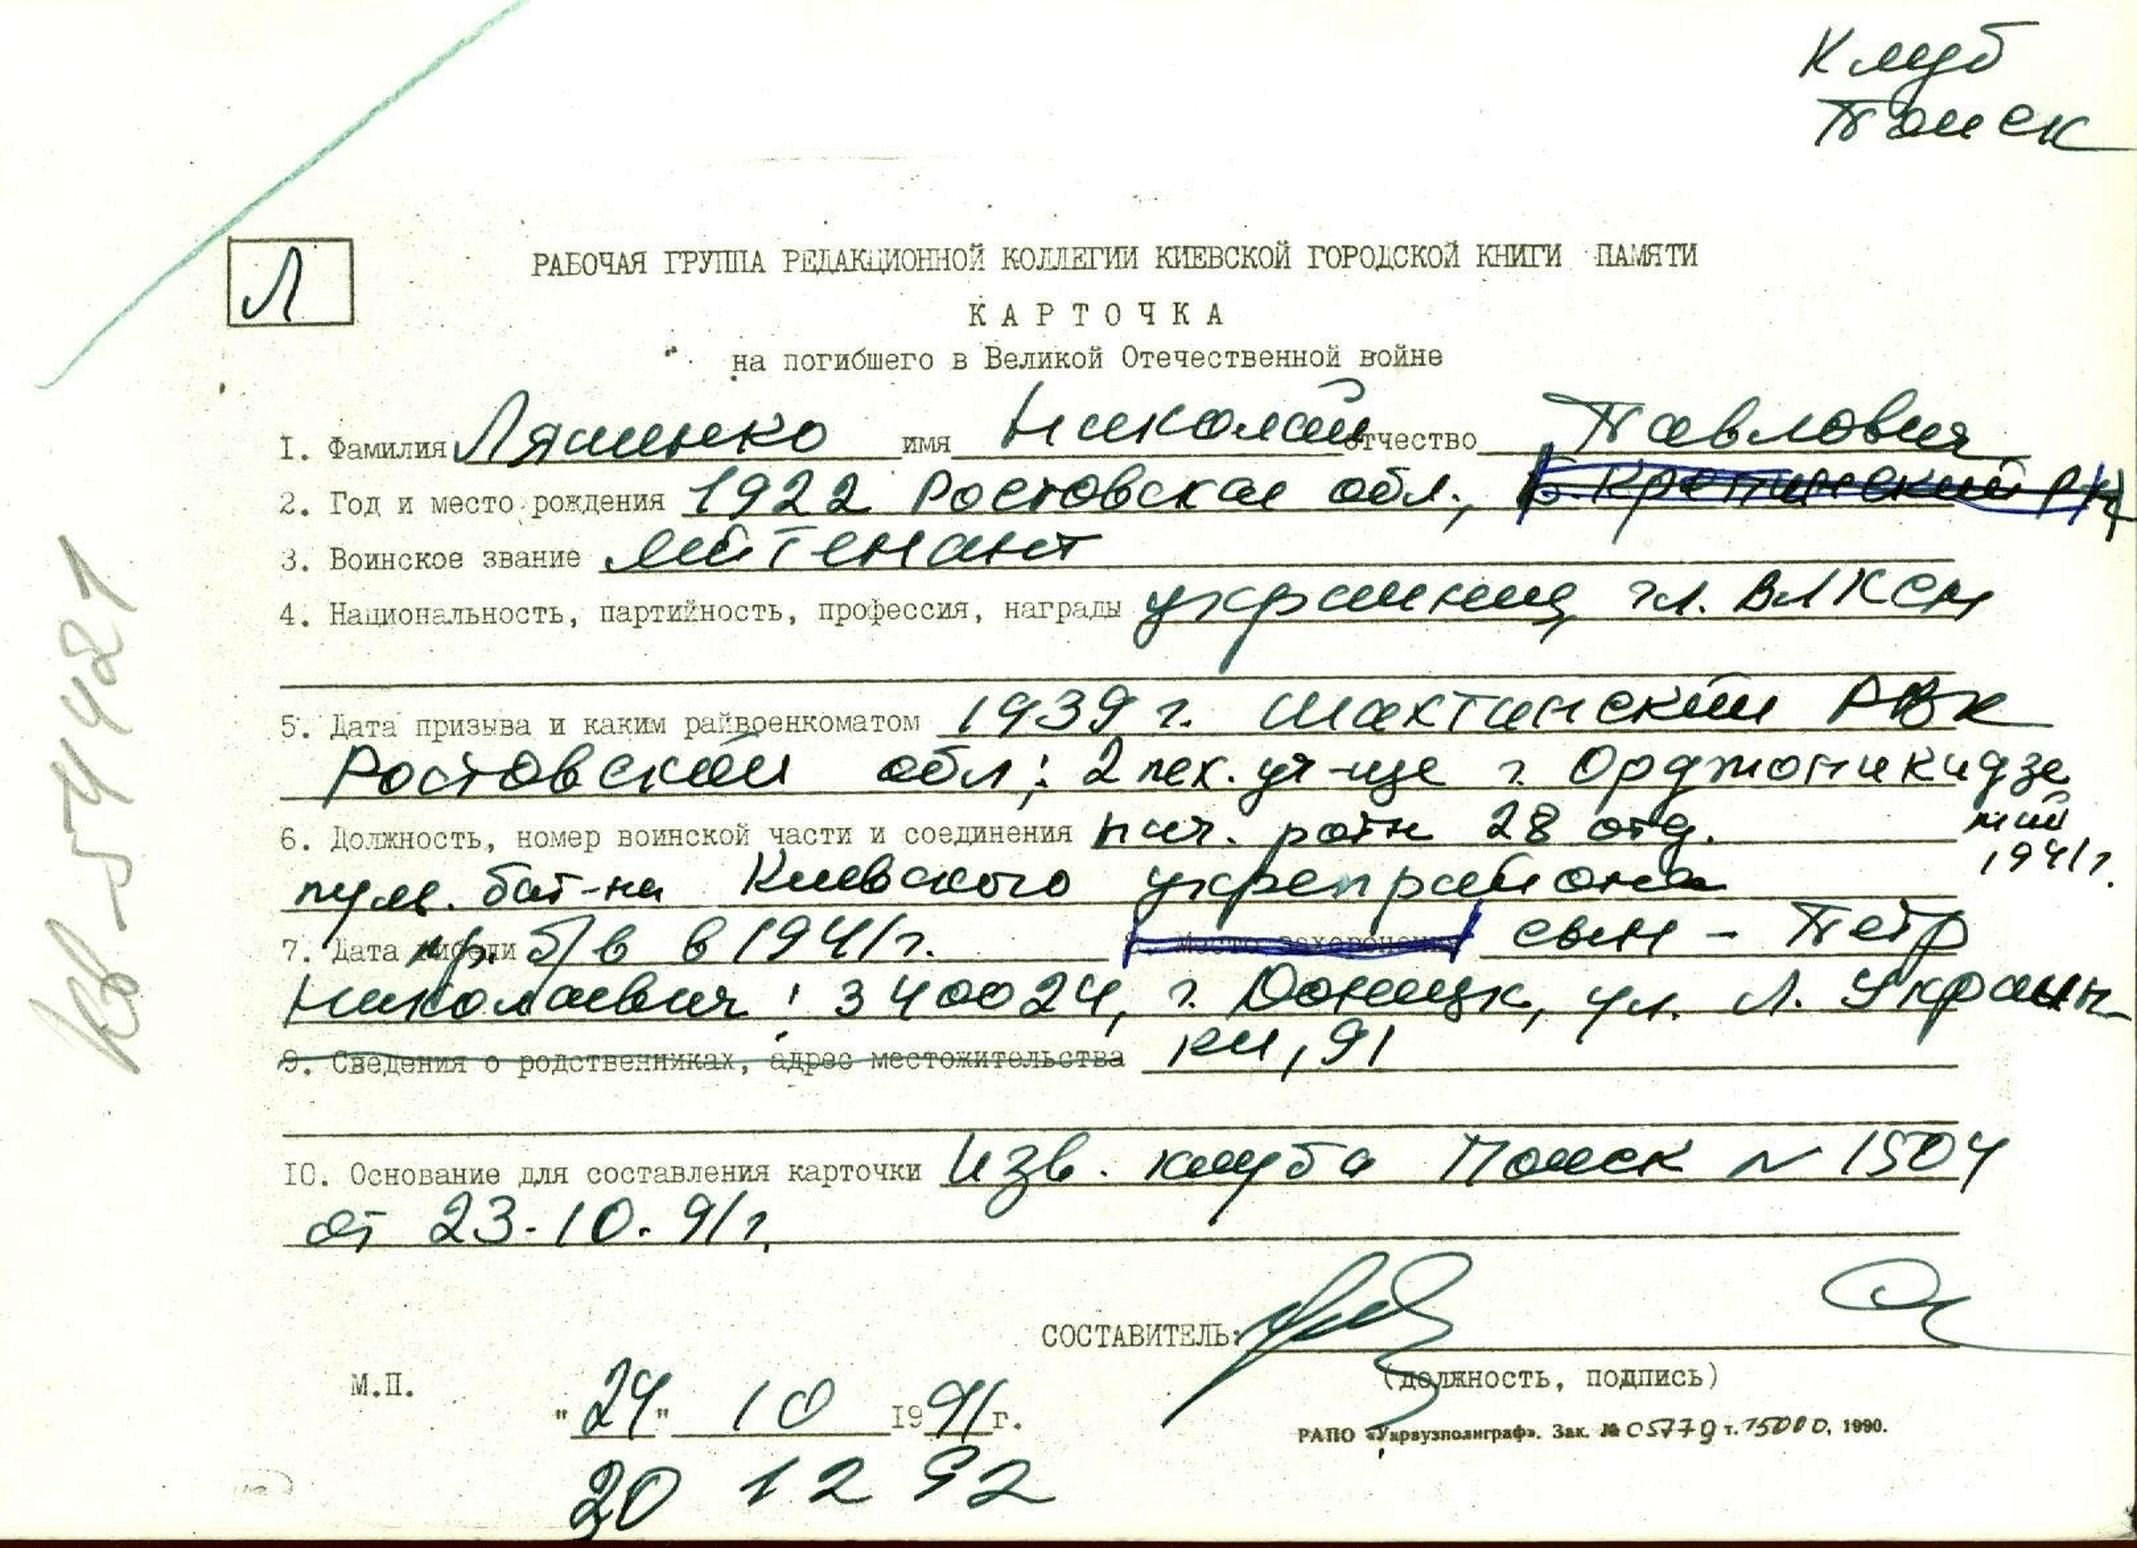 Клуб
Поиск
Л
РАБОЧАЯ ГРУППА РЕДАКЦИОННОЙ КОЛЛЕГИИ КИЕВСКОЙ ГОРОДСКОЙ КНИГИ ПАМЯТИ
КАРТОЧКА
на погибшего в Великой Отечественной войне
1. Фамилия Ляшенко имя Николай отчество Павлович
2. Год и место рождения 1922 Ростовская обл.,
3. Воинское звание лейтенант
4. Национальность, партийность, профессия, награды украинец чл. ВЛКСМ
5. Дата призыва и каким райвоенкоматом 1939 г. Шахтинский РВК
Ростовской обл; 2 пех. уч-ще г. Орджоникидзе
май
1941г.
6. Должность, номер воинской части и соединения нач. роты 28 отд.
пул. бат-на Киевского укрепрайона
7. Дата гибели пр. б/в в 1941г. 8. Место захоронения сын - Петр
Николаевич: 340024, г. Донецк, ул. Л. Украин-
ки, 91
9. Сведения о родственниках, адрес местожительства
10. Основание для составления карточки Изв. клуба Поиск N 1504
от 23.10.91г.
СОСТАВИТЕЛЬ:
(должность, подпись)
М.П.
"24" 10 1991г.
РАПО «Укрвузполиграф». Зак. № 05779 т. 15000, 1990.
20 12 92
Кв 54421